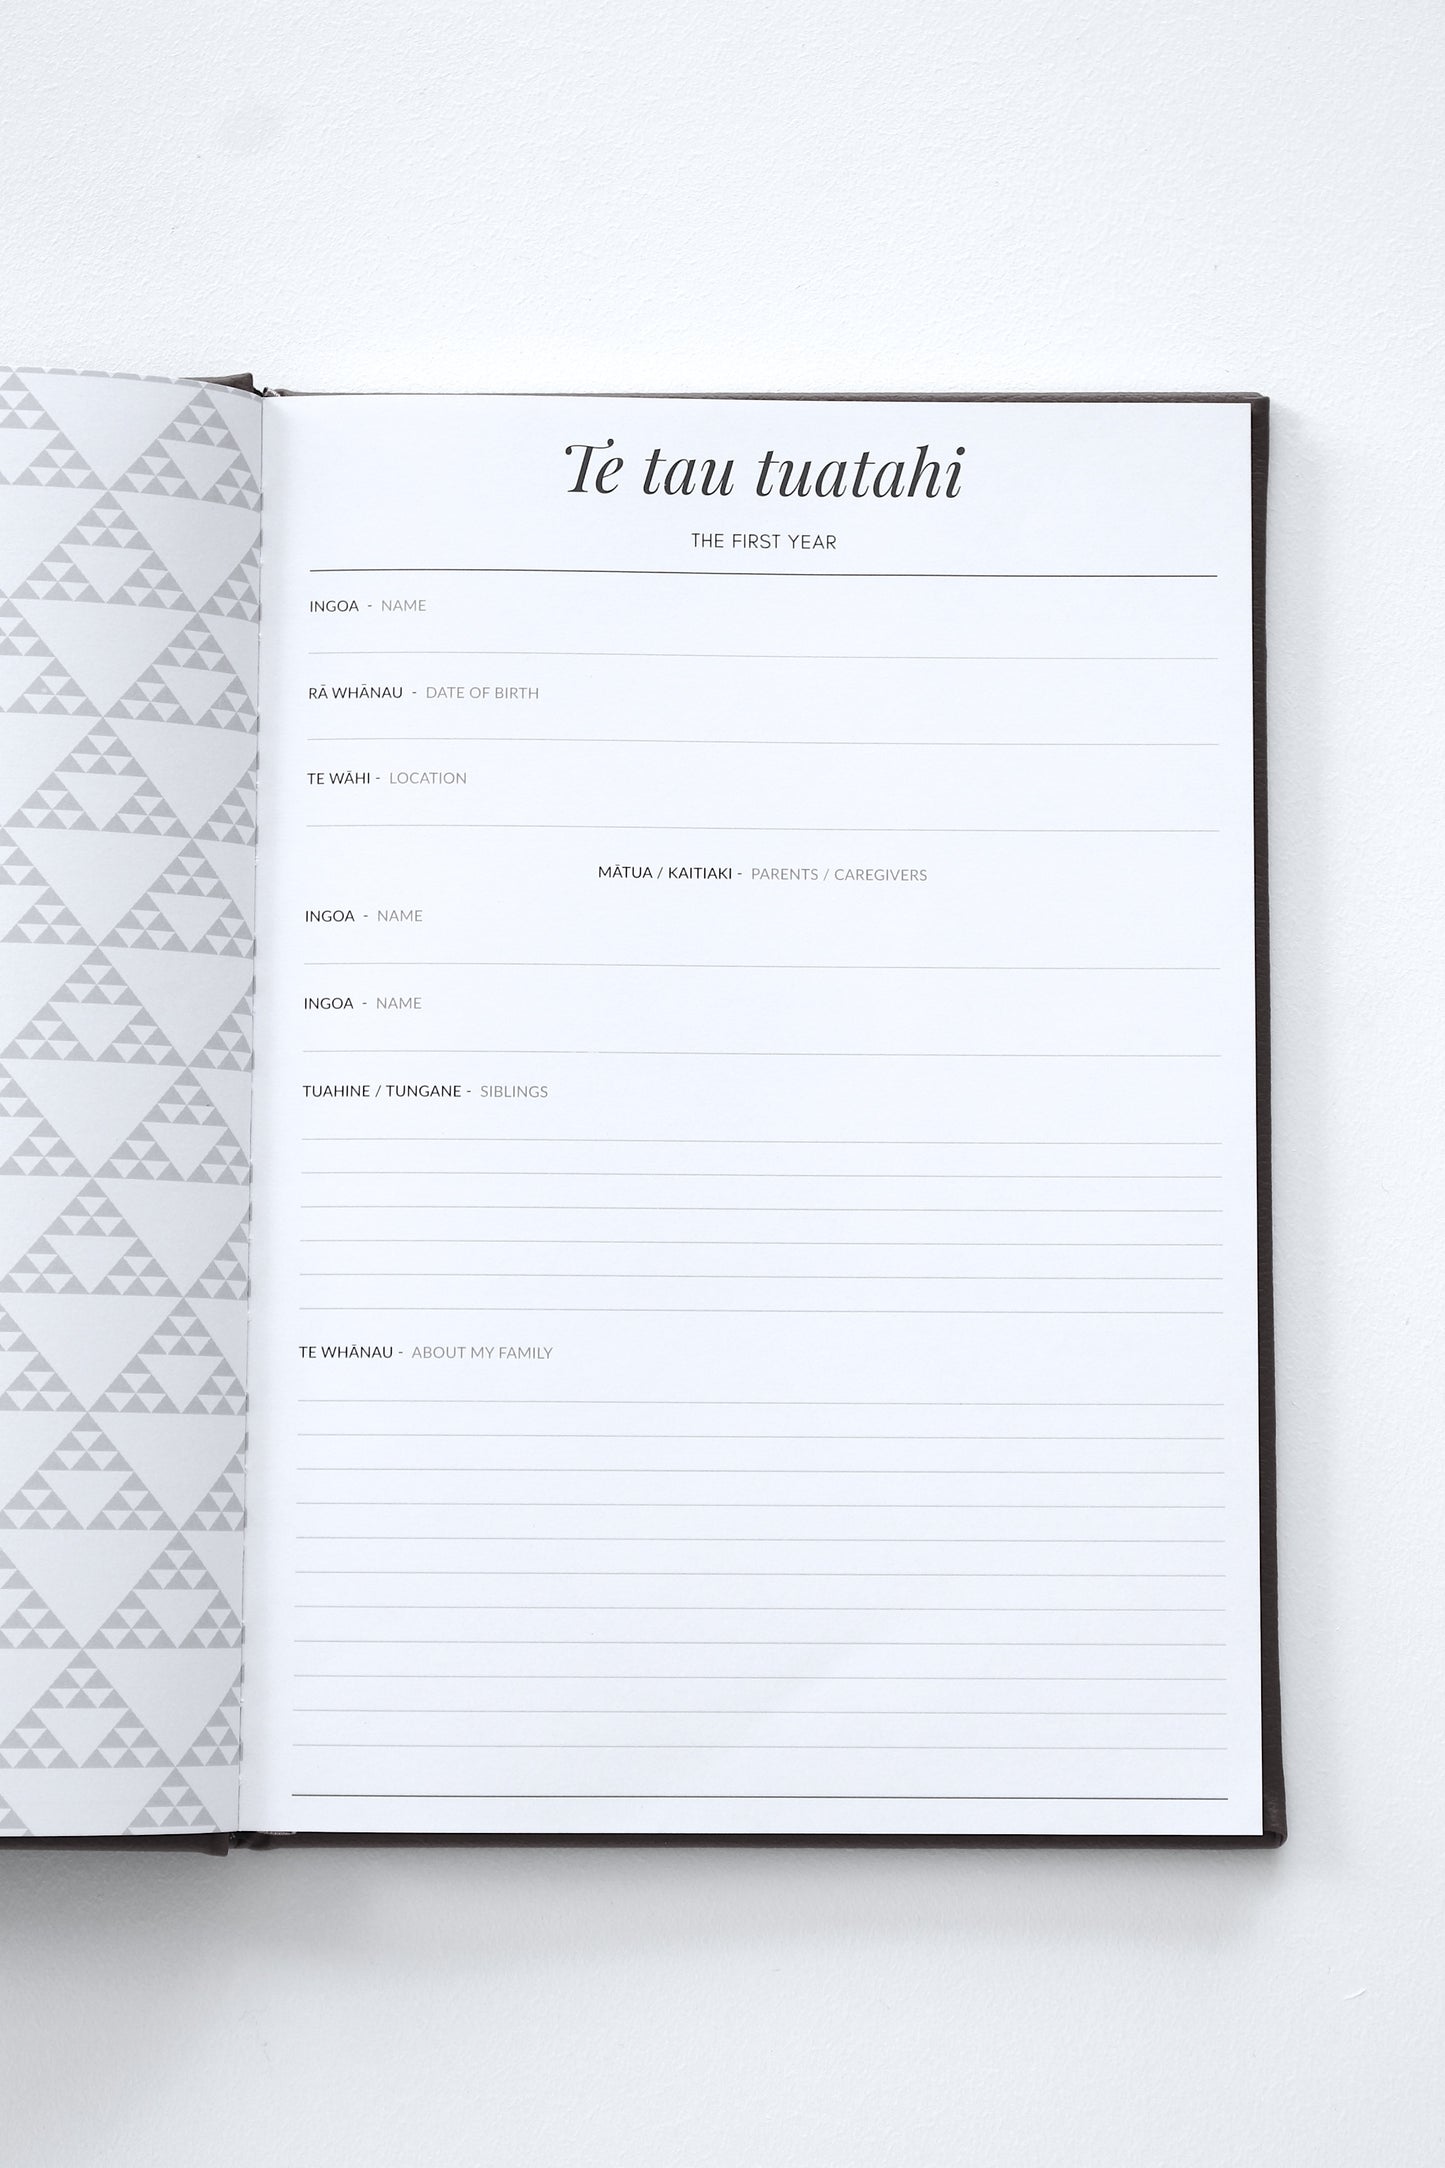 Te tau tuatahi
THE FIRST YEAR
INGOA - NAME
RĀ WHĀNAU - DATE OF BIRTH
TE WĀHI - LOCATION
MĀTUA / KAITIAKI - PARENTS / CAREGIVERS
INGOA - NAME
INGOA - NAME
TUAHINE / TUNGANE - SIBLINGS
TE WHĀNAU - ABOUT MY FAMILY